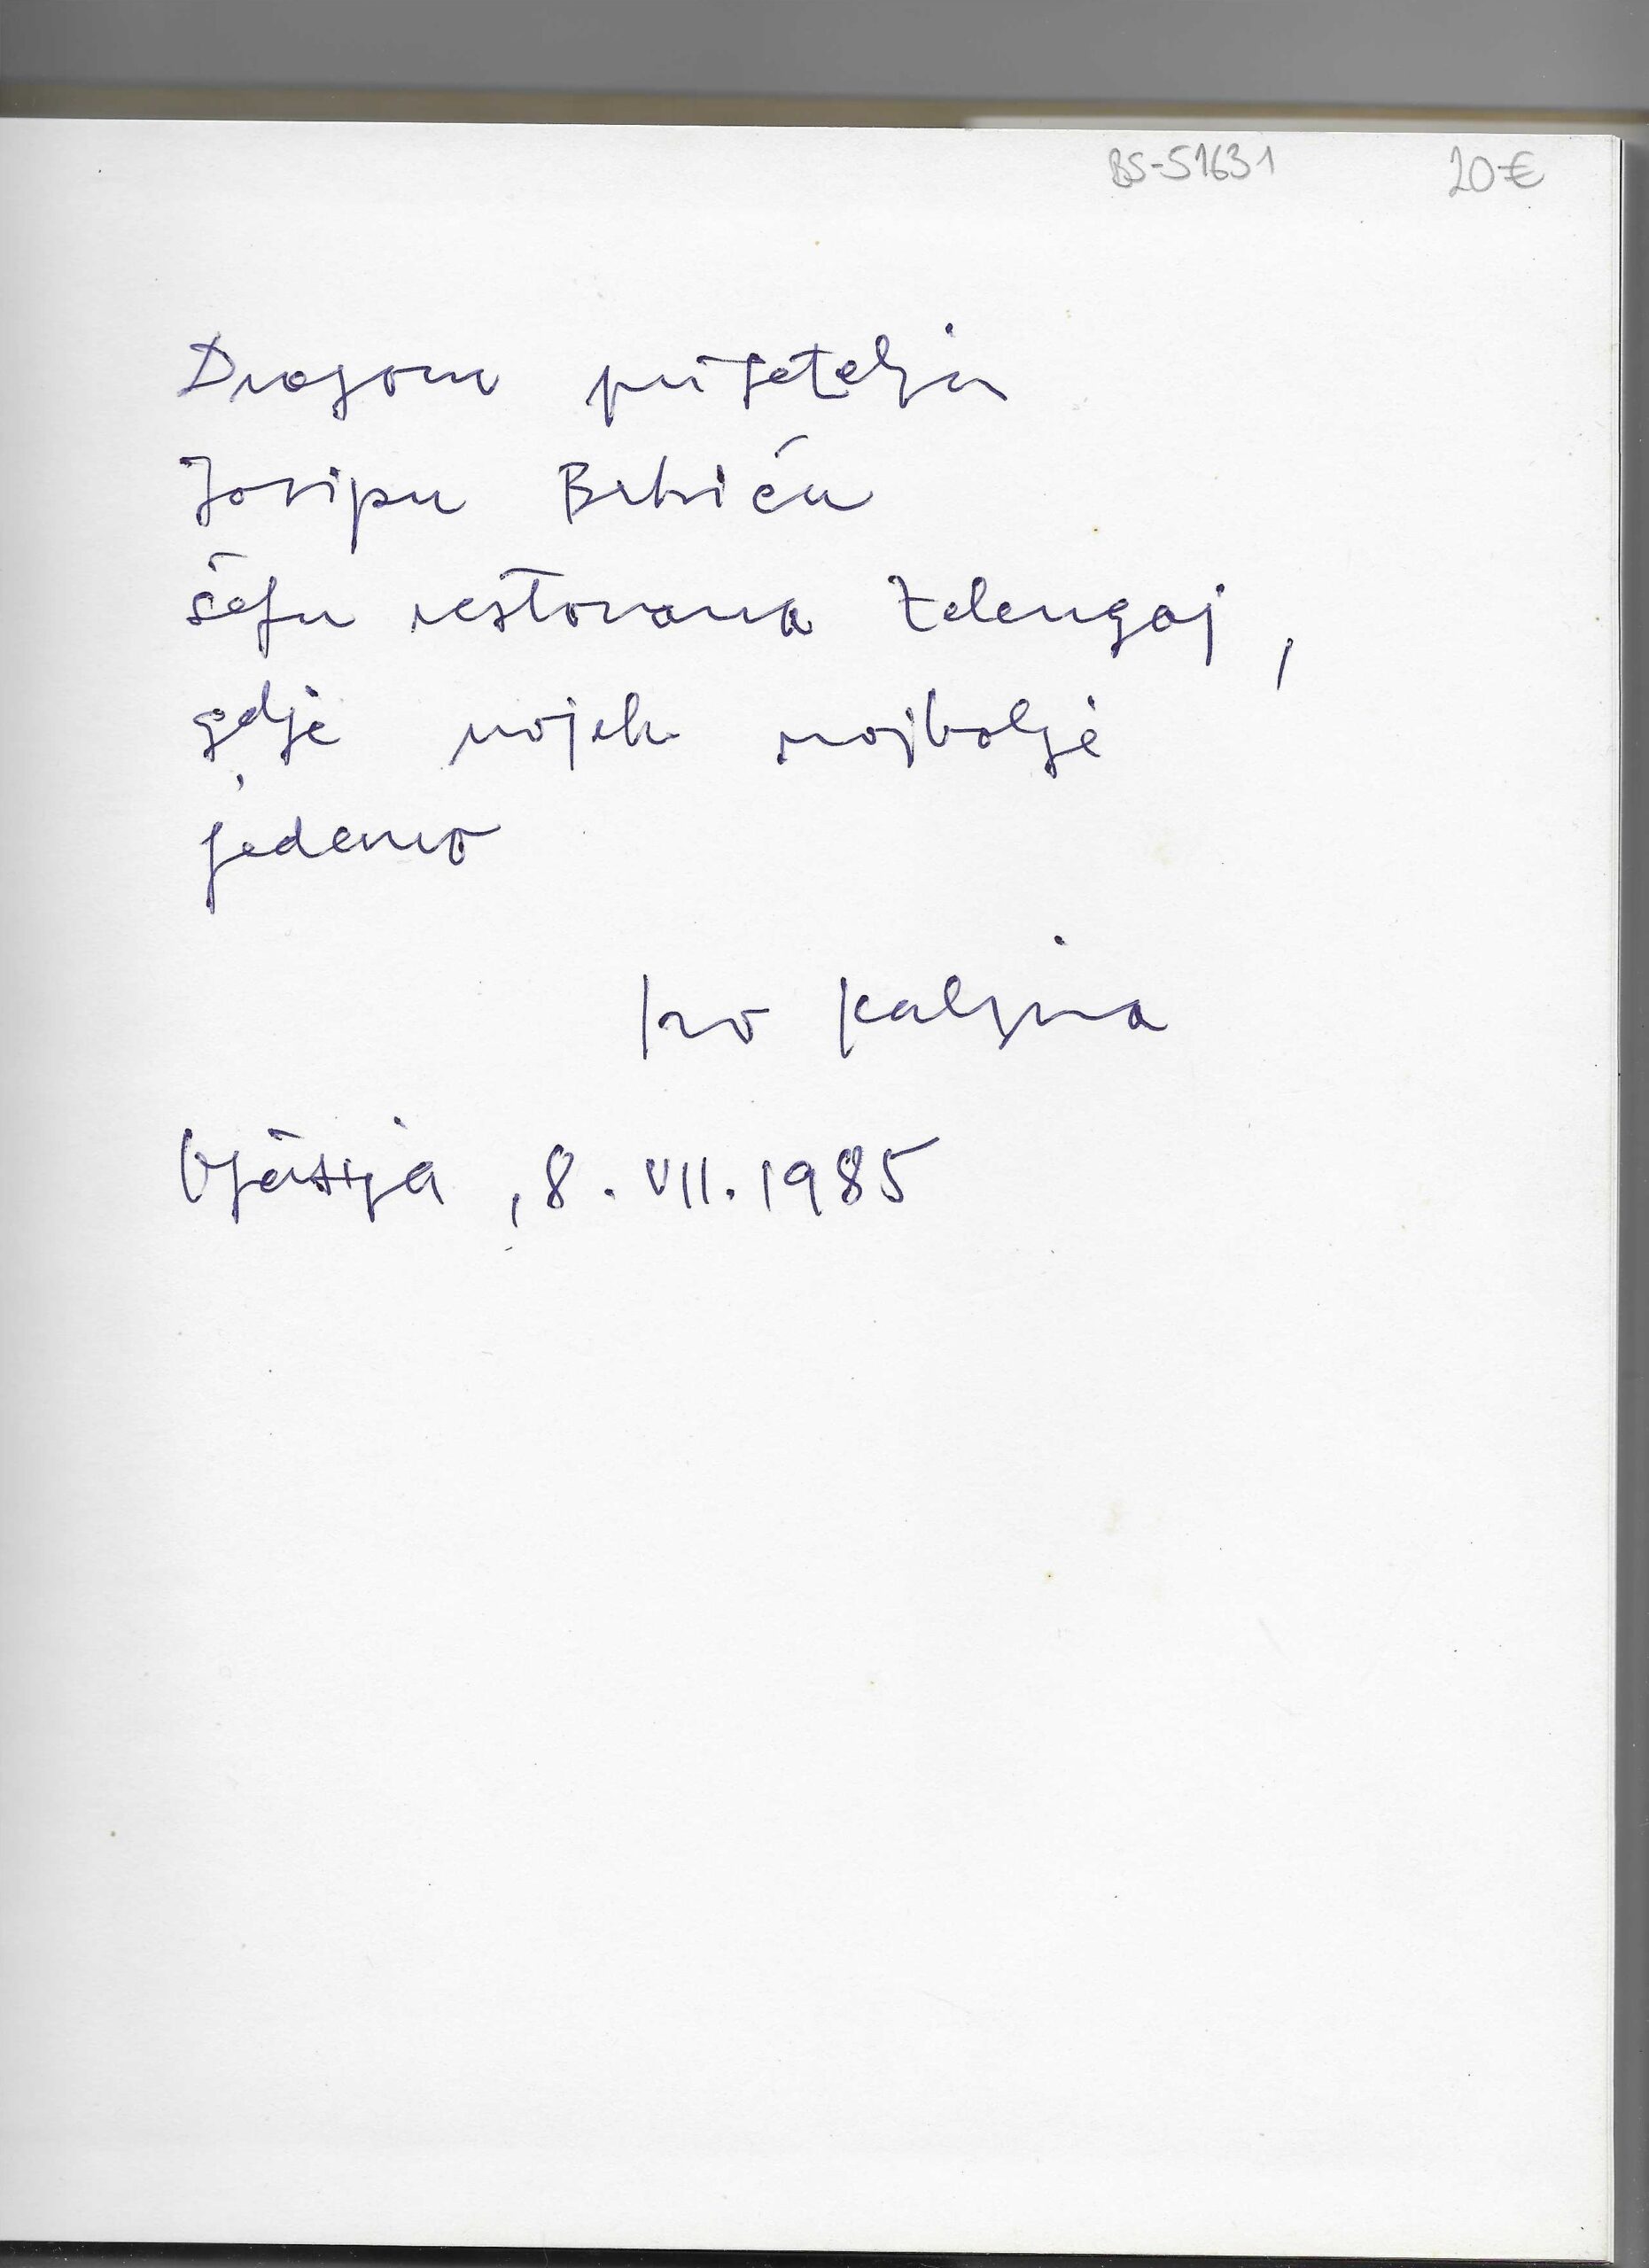 BS-51631 20€
Dragom prijatelju
Josipu
šefu restorana Zelengaj,
gdje uvijek najbolje
jedemo
Ivo Kaljina
, 8. VII. 1985